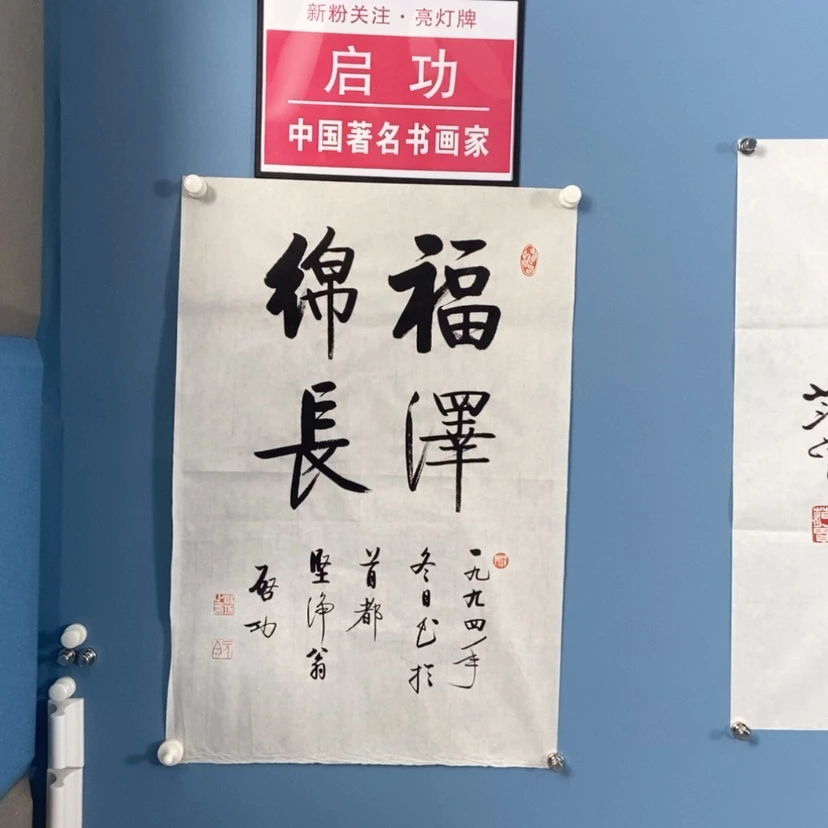 新粉关注·亮灯牌
启功
中国著名书画家
福澤
綿長
一九九四年
冬日书於
首都
坚浄翁
啓功